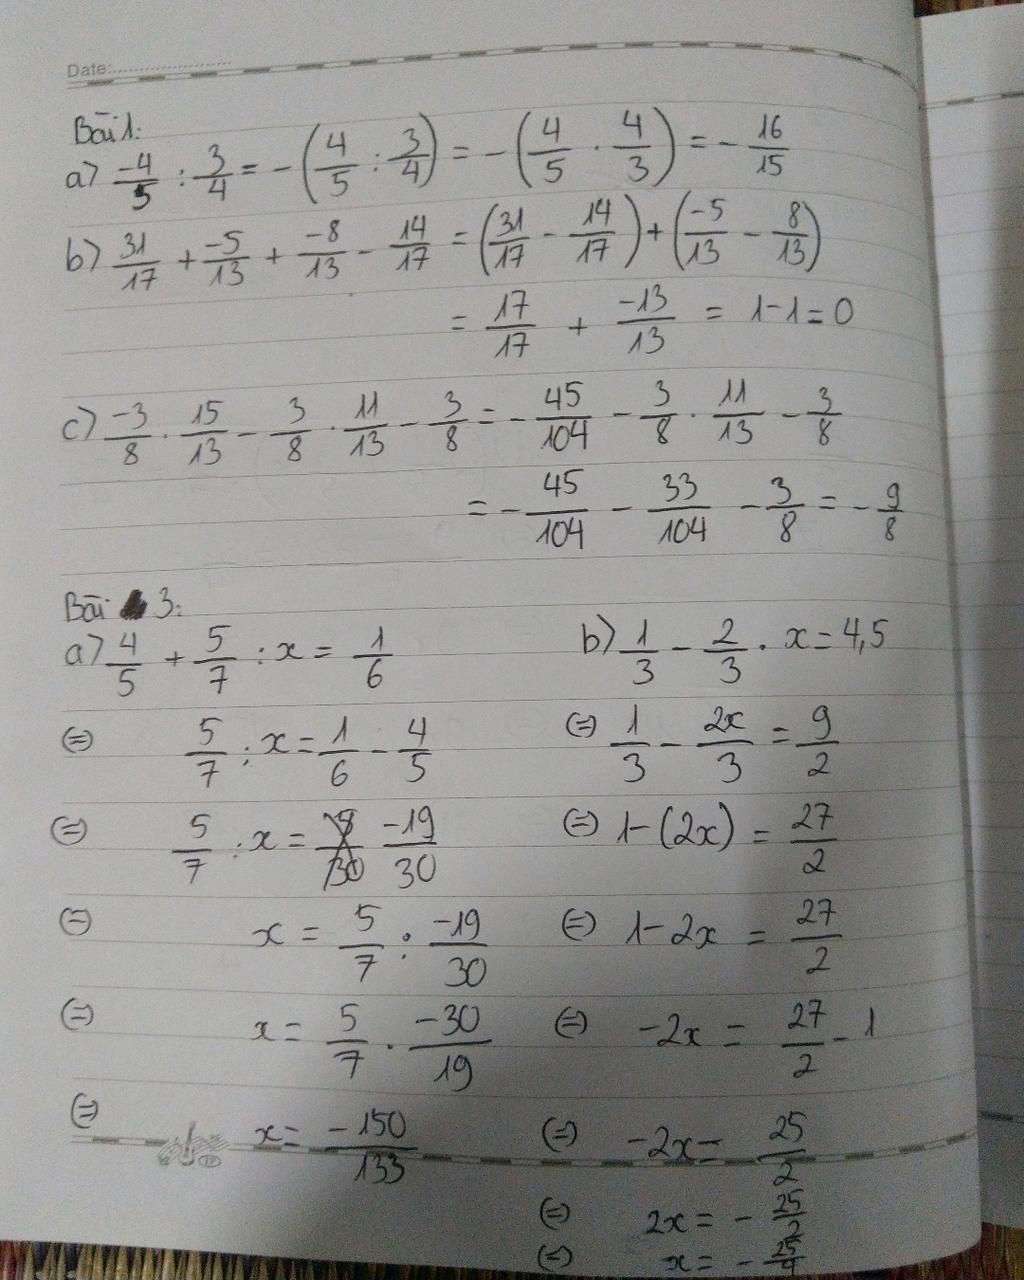 Date:
Bài 1:
a) -4/5 : 3/4 = -(4/5 : 3/4) = -(4/5 . 4/3) = - 16/15
b) 31/17 + -5/13 + -8/13 - 14/17 = (31/17 - 14/17) + (-5/13 - 8/13)
= 17/17 + -13/13 = 1-1=0
c) -3/8 . 15/13 - 3/8 . 11/13 - 3/8 = - 45/104 - 3/8 . 11/13 - 3/8
= - 45/104 - 33/104 - 3/8 = - 9/8
Bài 3:
a) 4/5 + 5/7 : x = 1/6
⇔ 5/7 : x = 1/6 - 4/5
⇔ 5/7 : x = -19/30
⇔ x = 5/7 : -19/30
⇔ x = 5/7 . -30/19
⇔ x = -150/133
b) 1/3 - 2/3 . x = 4,5
⇔ 1/3 - 2x/3 = 9/2
⇔ 1-(2x) = 27/2
⇔ 1-2x = 27/2
⇔ -2x = 27/2 - 1
⇔ -2x = 25/2
⇔ 2x = - 25/2
⇔ x = - 25/4